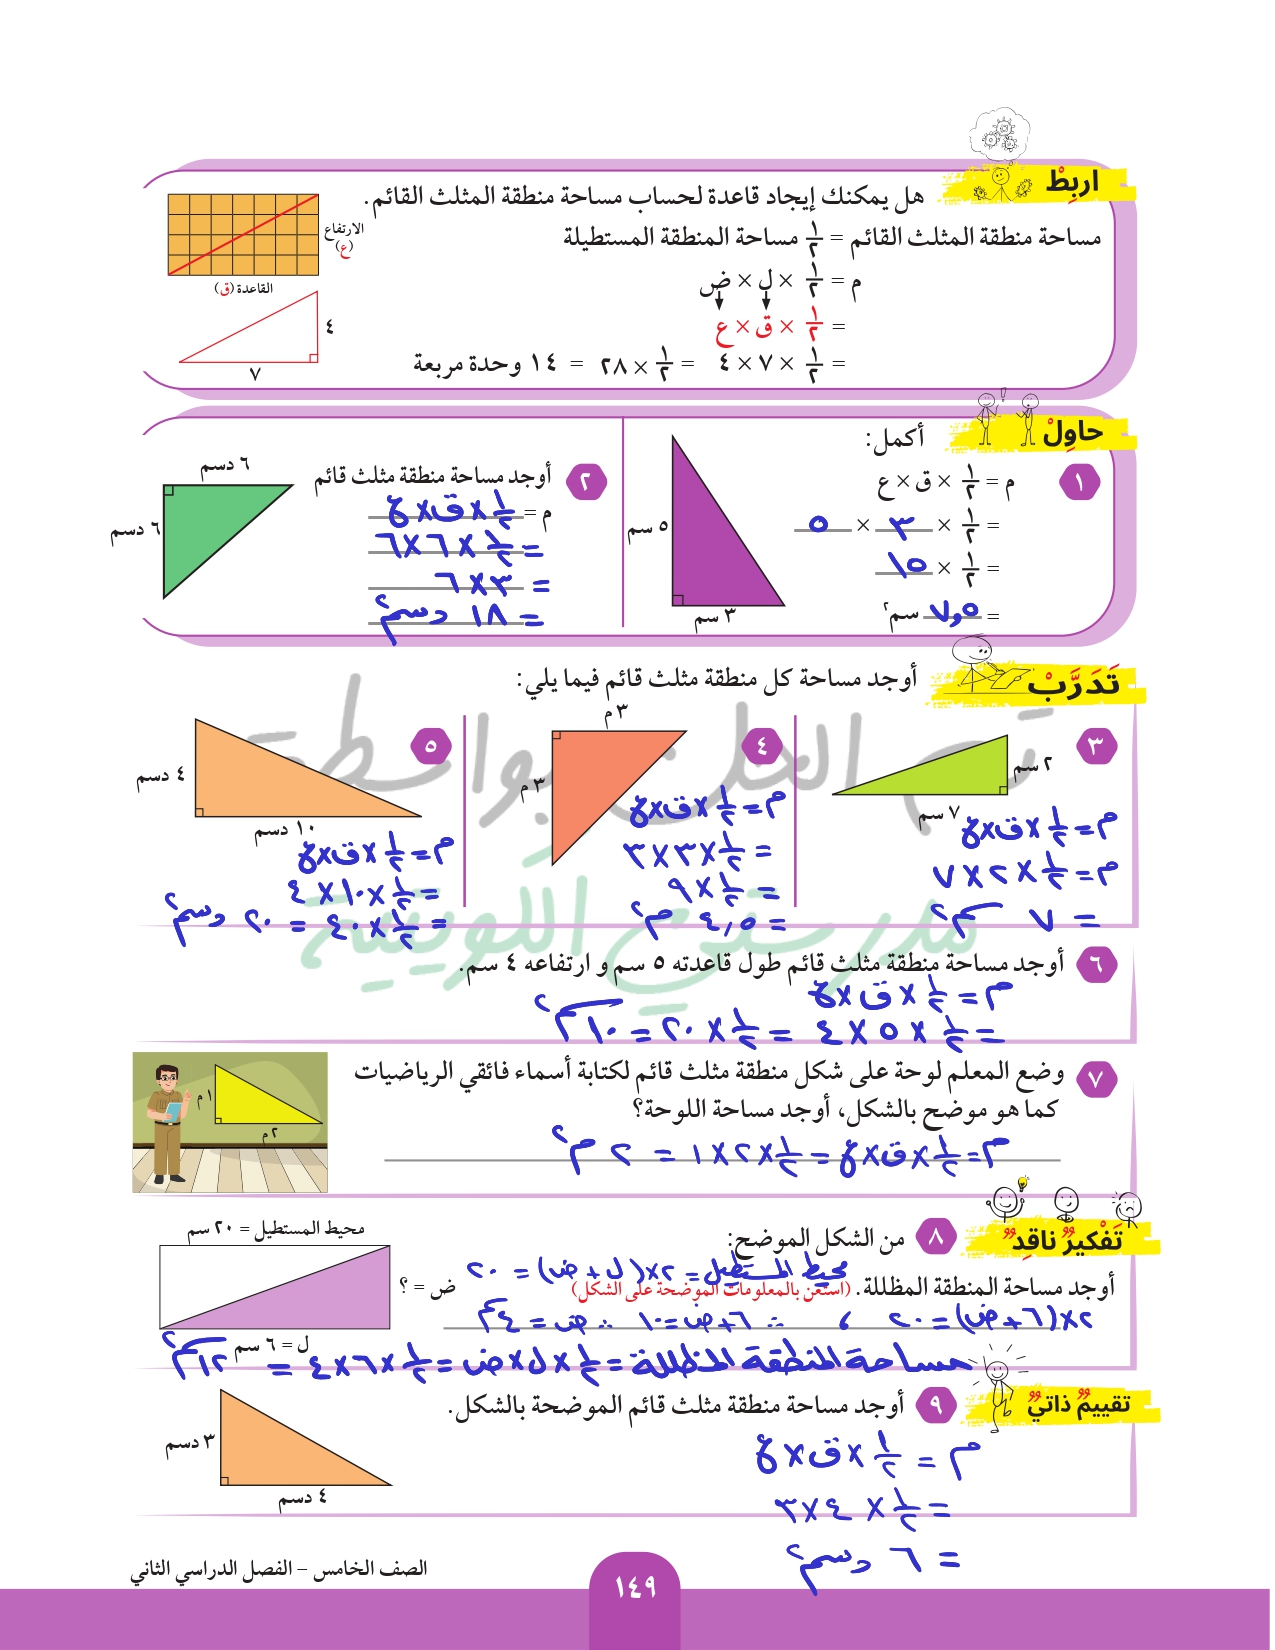 اربِطْ
هل يمكنك إيجاد قاعدة لحساب مساحة منطقة المثلث القائم.
مساحة منطقة المثلث القائم = ١/٢ مساحة المنطقة المستطيلة
م = ١/٢ × ل × ض
= ١/٢ × ق × ع
= ١/٢ × ٧ × ٤ = ١/٢ × ٢٨ = ١٤ وحدة مربعة
الارتفاع
(ع)
القاعدة (ق)
٤
٧
حاوِلْ
أكمل:
١
م = ١/٢ × ق × ع
= ١/٢ × ٣ × ٥
= ١/٢ × ١٥
= ٧,٥ سم٢
٥ سم
٣ سم
٢ أوجد مساحة منطقة مثلث قائم
م = ١/٢ × ق × ع
= ١/٢ × ٦ × ٦
= ٣ × ٦
= ١٨ دسم٢
٦ دسم
٦ دسم
تَدَرَّبْ
أوجد مساحة كل منطقة مثلث قائم فيما يلي:
قم الحل بواسطة
مدرستي الكويتية
٣
٢ سم
٧ سم
م = ١/٢ × ق × ع
م = ١/٢ × ٢ × ٧
= ٧ سم٢
٤
٣ م
٣ م
م = ١/٢ × ق × ع
= ١/٢ × ٣ × ٣
= ١/٢ × ٩
= ٤,٥ م٢
٥
٤ دسم
١٠ دسم
م = ١/٢ × ق × ع
= ١/٢ × ١٠ × ٤
= ١/٢ × ٤٠ = ٢٠ دسم٢
٦ أوجد مساحة منطقة مثلث قائم طول قاعدته ٥ سم و ارتفاعه ٤ سم.
م = ١/٢ × ق × ع
= ١/٢ × ٥ × ٤ = ١/٢ × ٢٠ = ١٠ سم٢
٧ وضع المعلم لوحة على شكل منطقة مثلث قائم لكتابة أسماء فائقي الرياضيات
كما هو موضح بالشكل، أوجد مساحة اللوحة؟
م = ١/٢ × ق × ع = ١/٢ × ٢ × ١ = ٢ م٢
١ م
٢ م
تَفْكيرٌ ناقِدٌ
٨ من الشكل الموضح:
محيط المستطيل = ٢ × (ل + ض) = ٢٠
أوجد مساحة المنطقة المظللة. (استعن بالمعلومات الموضحة على الشكل)
٢ × (٦ + ض) = ٢٠ ، ∴ ٦ + ض = ١٠ ∴ ض = ٤ سم
مساحة المنطقة المظللة = ١/٢ × ل × ض = ١/٢ × ٦ × ٤ = ١٢ سم٢
محيط المستطيل = ٢٠ سم
ض = ؟
ل = ٦ سم
تقييمٌ ذاتيٌّ
٩ أوجد مساحة منطقة مثلث قائم الموضحة بالشكل.
م = ١/٢ × ق × ع
= ١/٢ × ٤ × ٣
= ٦ دسم٢
٣ دسم
٤ دسم
الصف الخامس – الفصل الدراسي الثاني
١٤٩